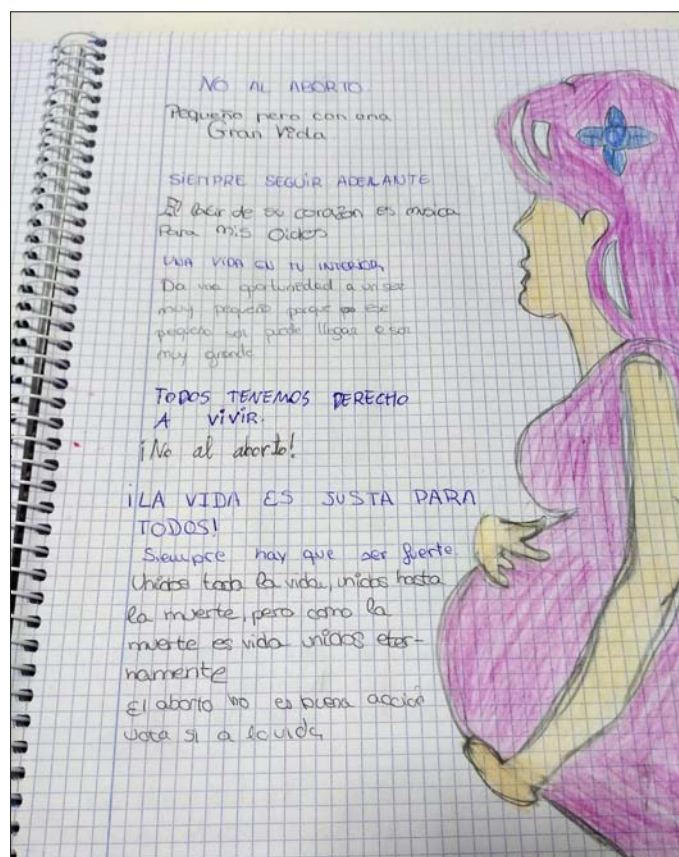 NO AL ABORTO
Pequeño pero con una
Gran Vida
SIEMPRE SEGUIR ADELANTE
El latir de su corazón es musica
Para mis Oidos
UNA VIDA EN TU INTERIOR,
Da una oportunidad a un ser
muy pequeño porque ese
pequeño ser puede llegar a ser
muy grande
TODOS TENEMOS DERECHO
A VIVIR.
¡No al aborto!
¡LA VIDA ES JUSTA PARA
TODOS!
Siempre hay que ser fuerte.
Unidos toda la vida, unidos hasta
la muerte, pero como la
muerte es vida unidos eter-
namente
El aborto no es buena acción
vota si a la vida